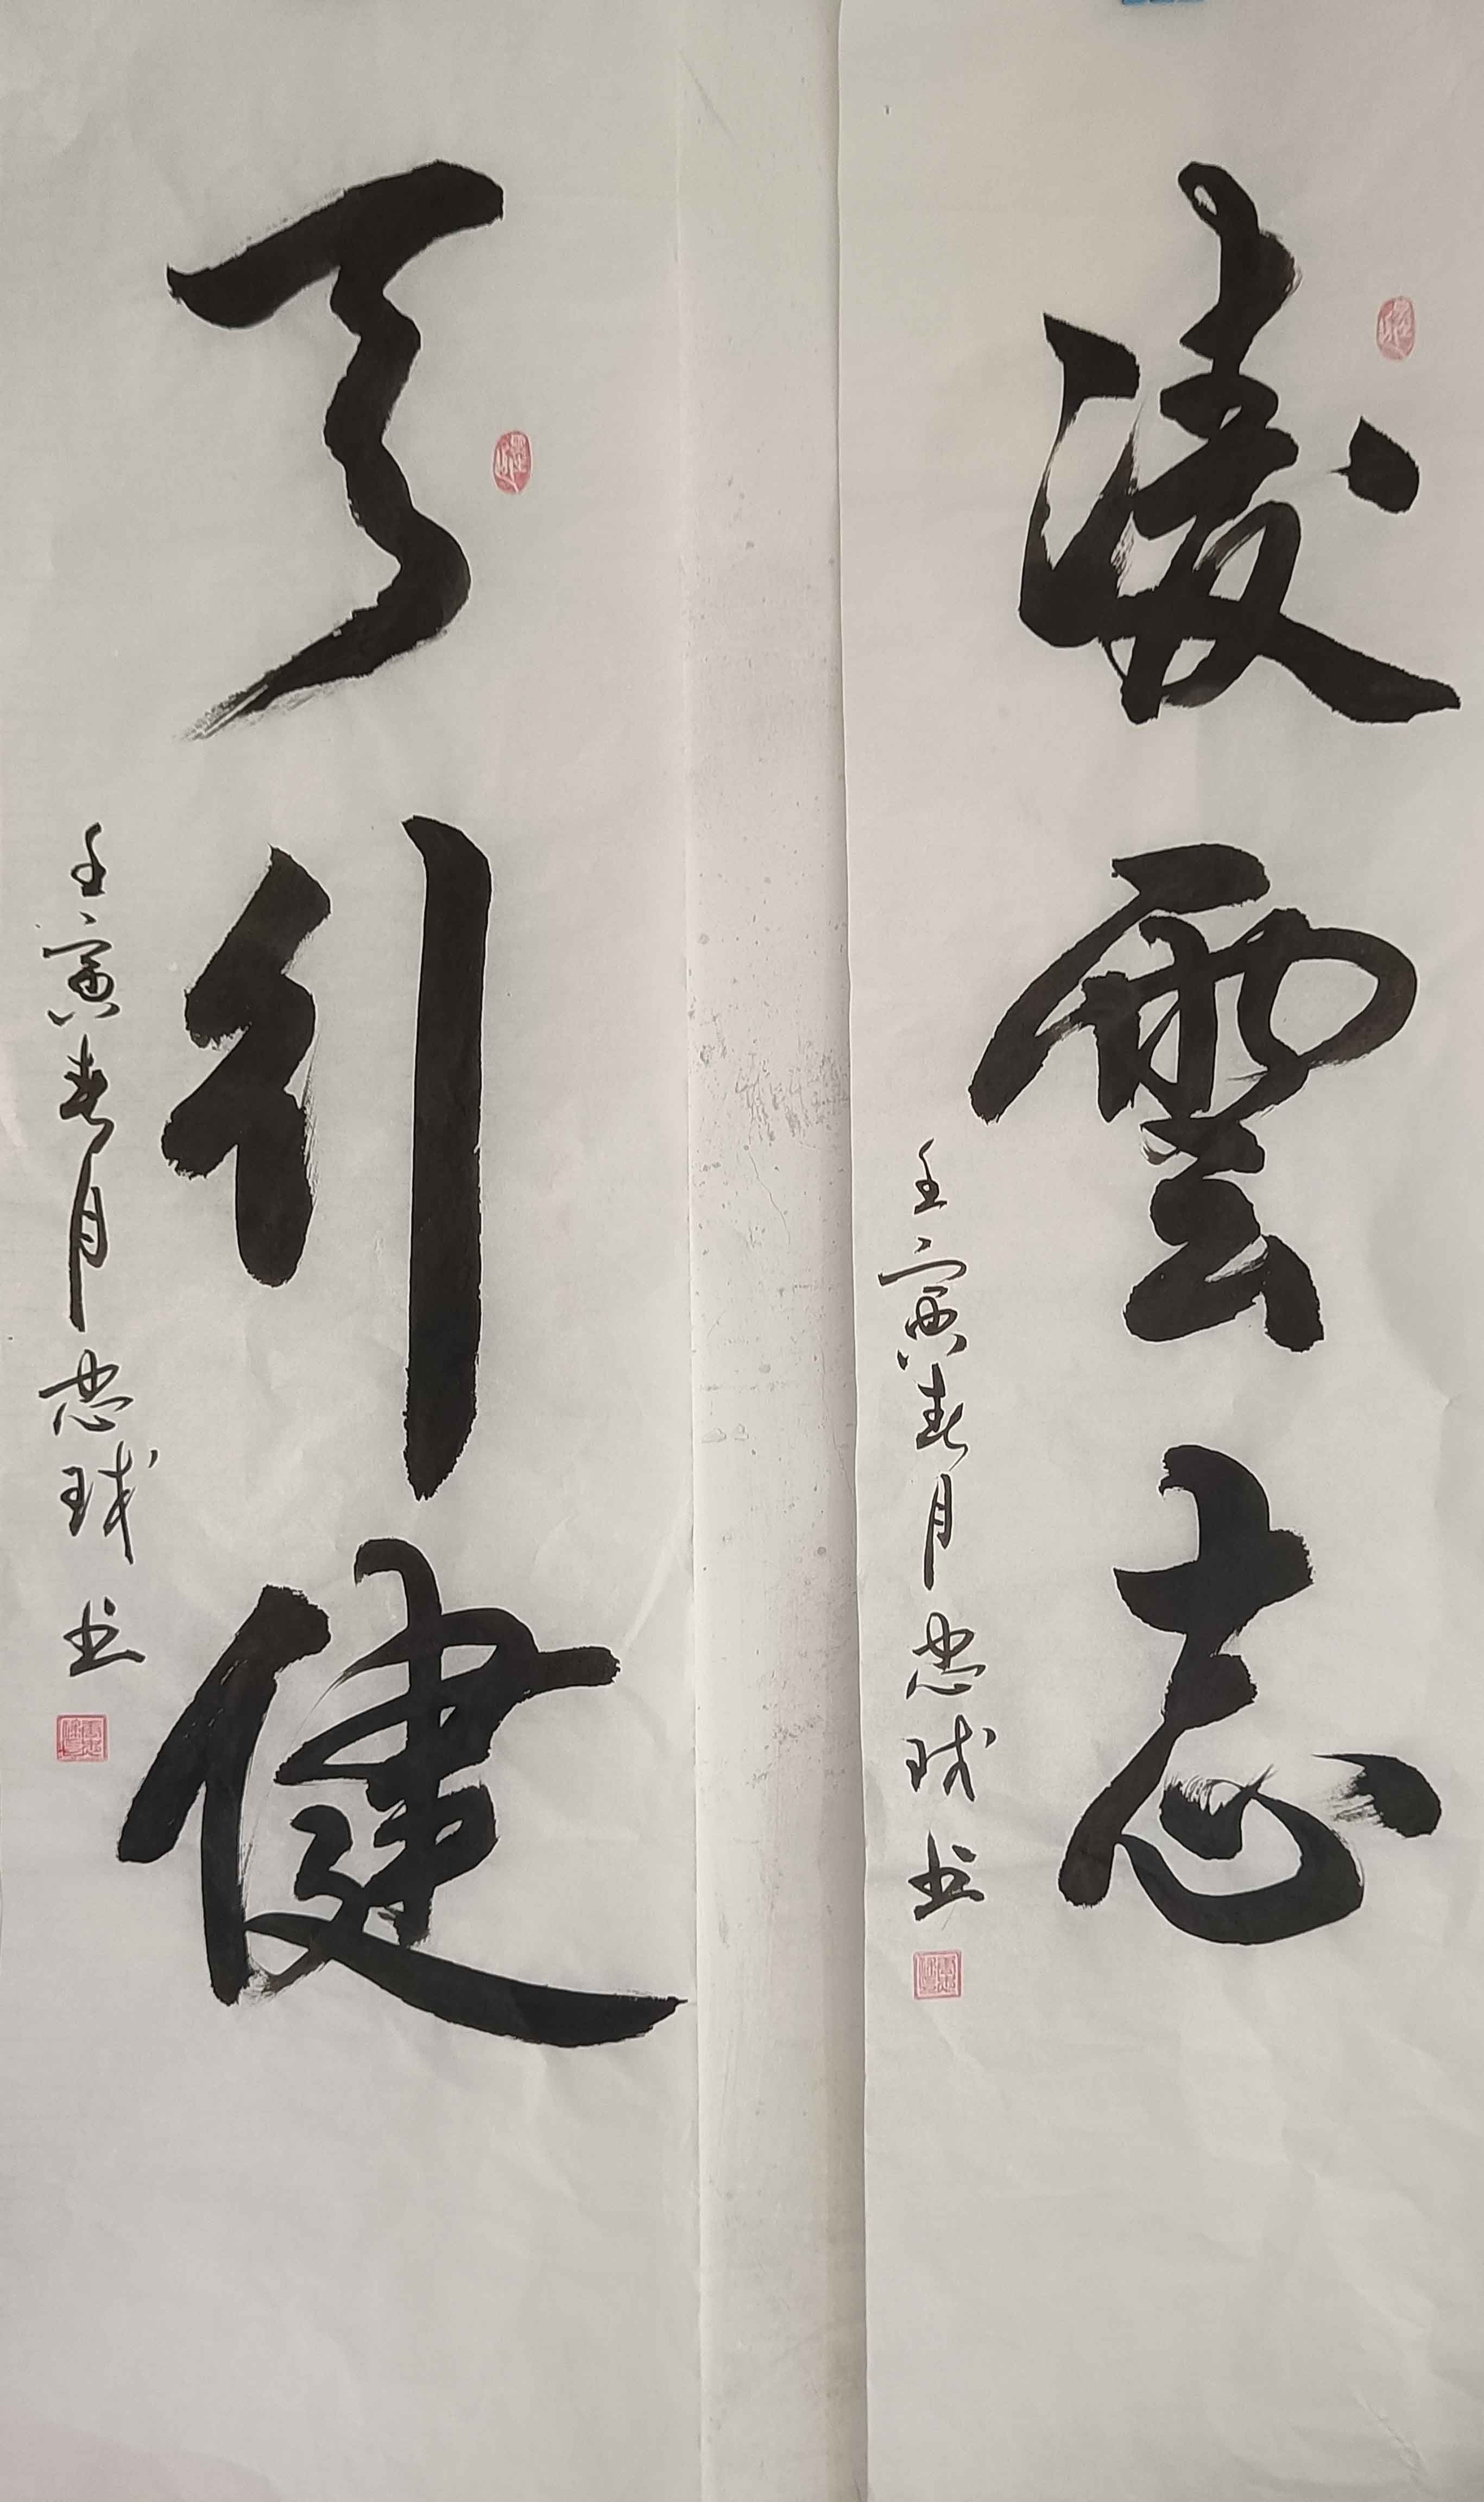 凌雲志
壬寅春月忠球书
天行健
壬寅春月忠球书